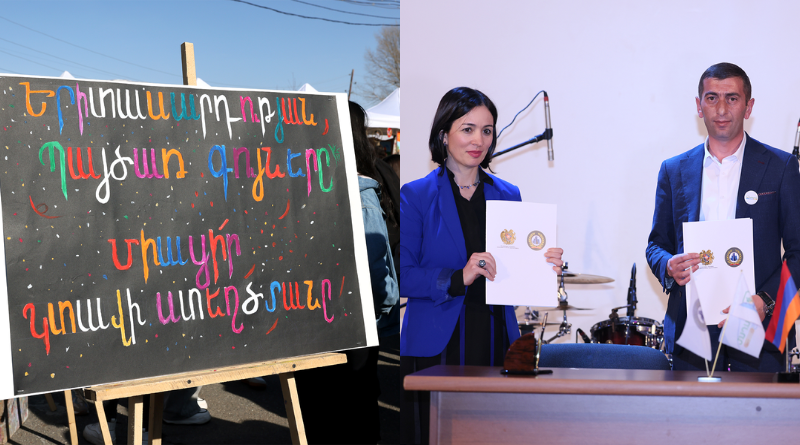 Երիտասարդության,
Պայծառ գույները՝
միայի՛ր
կտավի ստեղծմանը